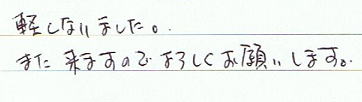 軽しないました。
また来ますのでよろしくお願いします。